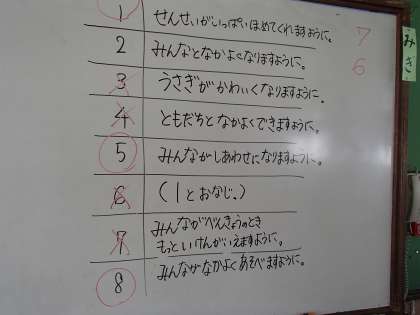 1 せんせいがいっぱいほめてくれますように。
2 みんなとなかよくなりますように。
3 うさぎがかわいくなりますように。
4 ともだちとなかよくできますように。
5 みんながしあわせになりますように。
6 (1とおなじ。)
7 みんながべんきょうのとき
もっといけんがいえますように。
8 みんながなかよくあそべますように。
7
6
みき